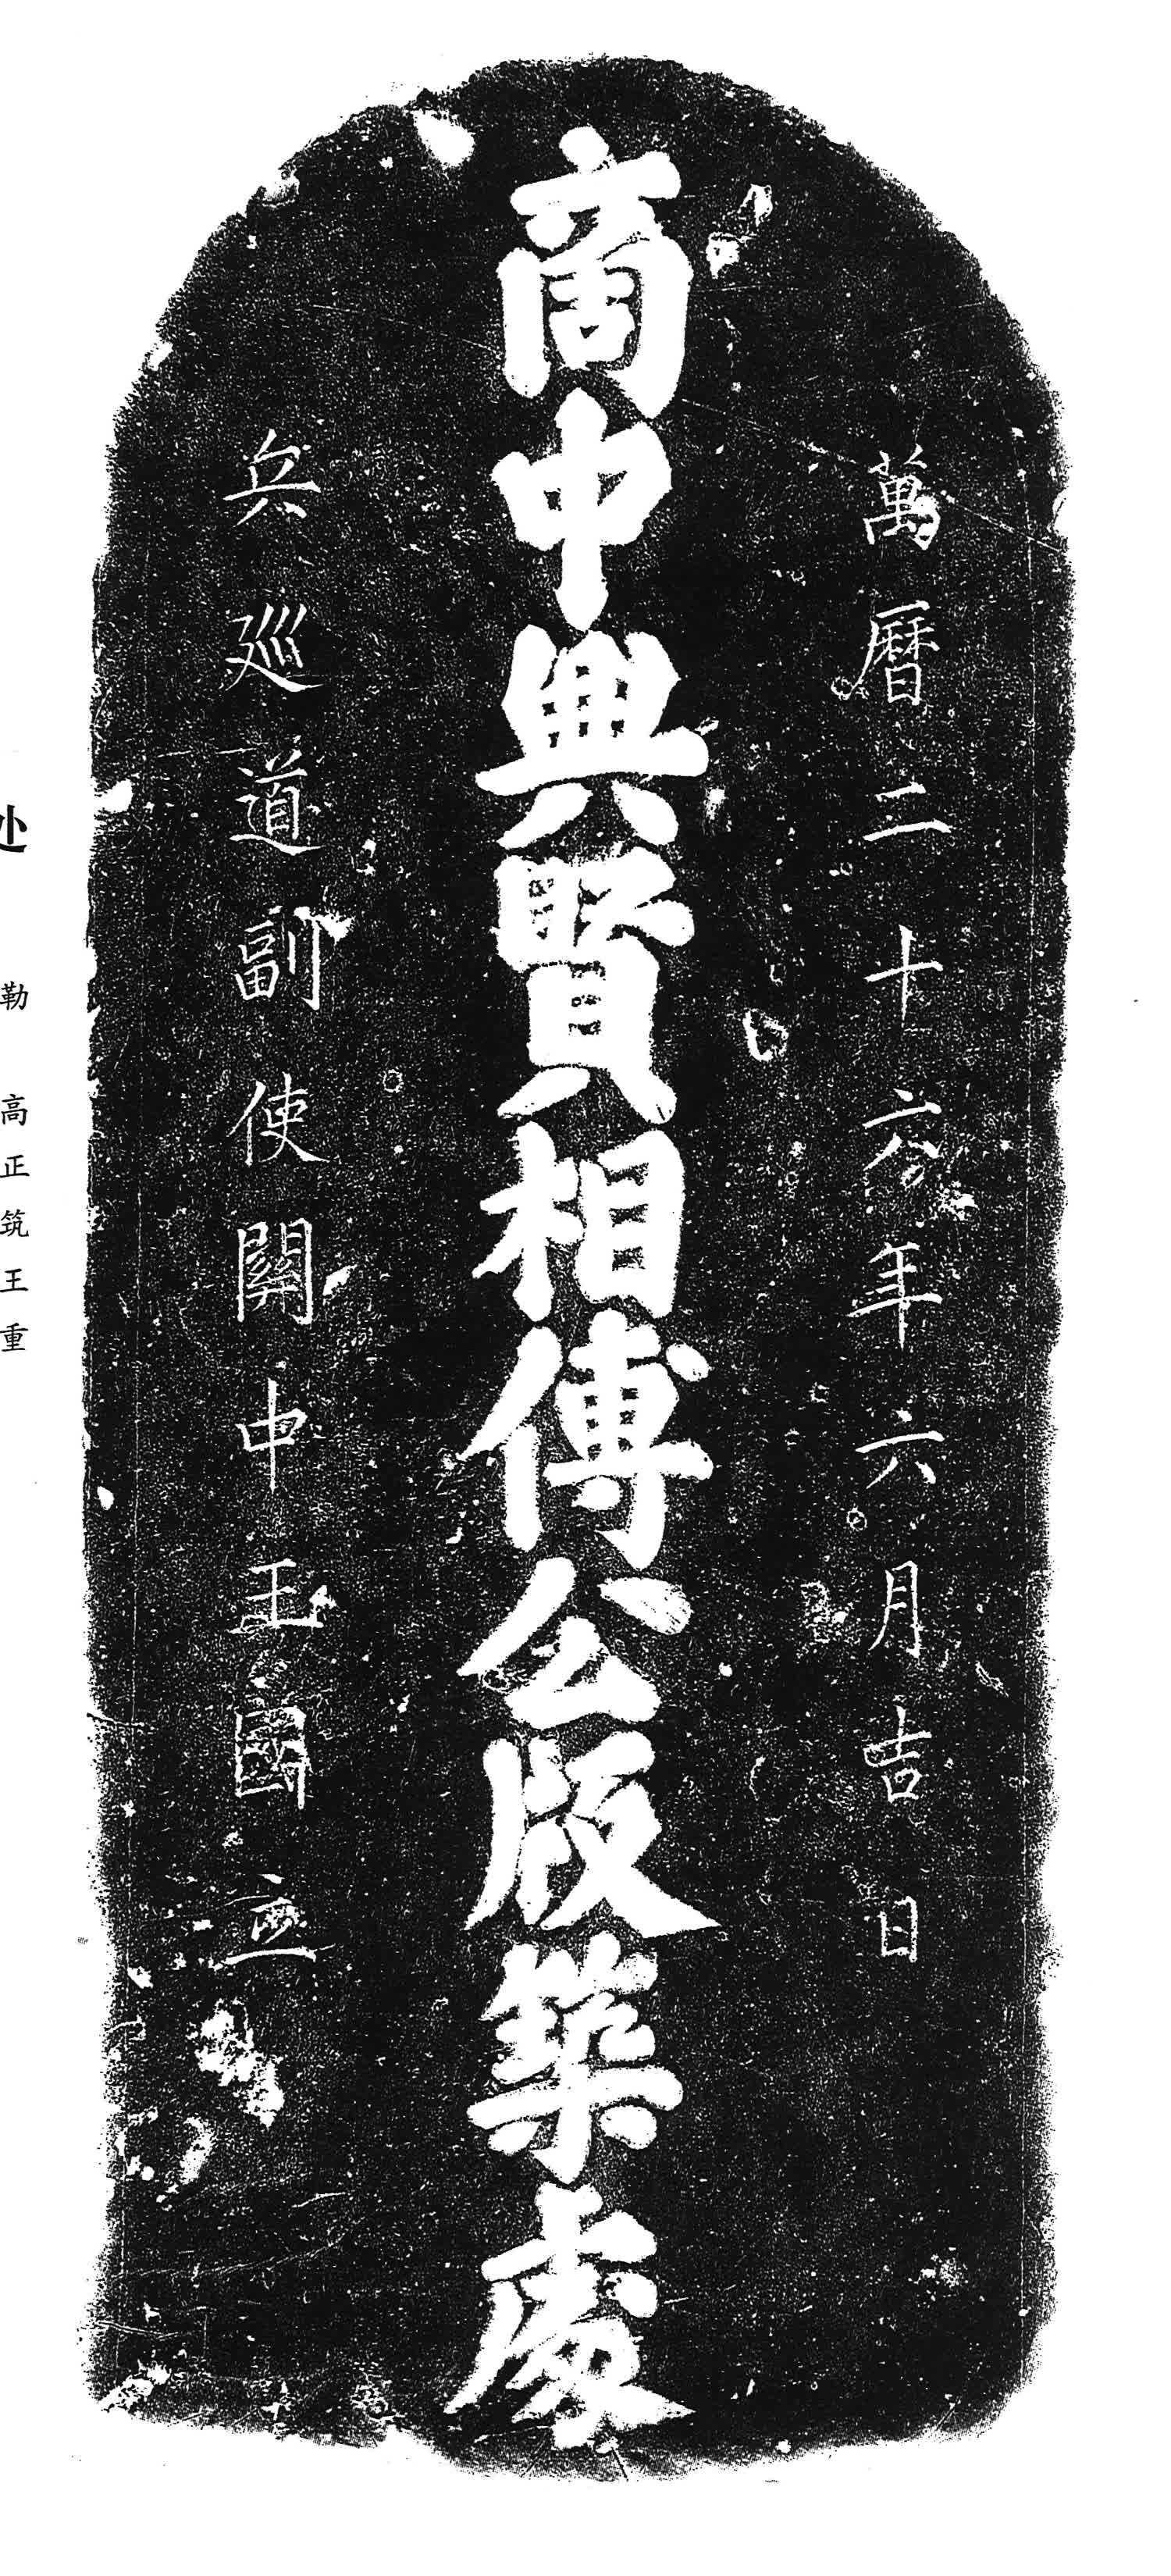 萬曆二十六年六月吉日
商中興賢相傅公版築處
兵巡道副使關中王國立
处
勒 高正筑王重